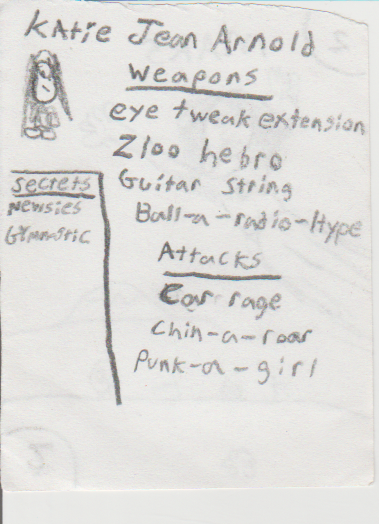 Katie Jean Arnold
Weapons
eye tweak extension
Zloo hebro
Guitar string
Ball-a-radio-Hype
Secrets
Newsies
Gymnastic
Attacks
Ear rage
Chin-a-roar
Punk-a-girl